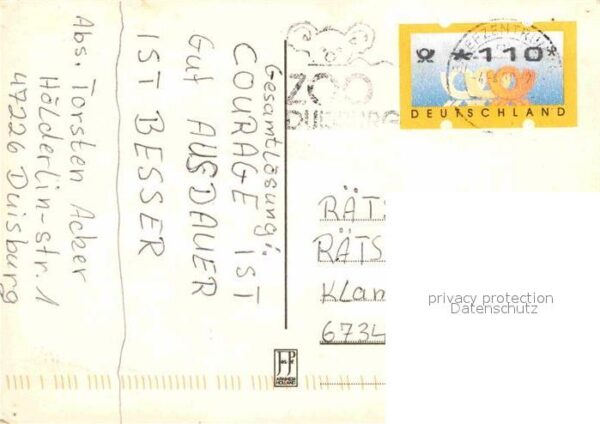 Abs. Torsten Acker
Hölderlin-str. 1
47226 Duisburg
Gesamtlösung:
COURAGE IST
Gut AUSDAUER
IST BESSER
ZOO
DUISBURG
*110*
DEUTSCHLAND
RÄTS
RÄTS
Klan
6734
privacy protection
Datenschutz
ARNHEM
HOLLAND